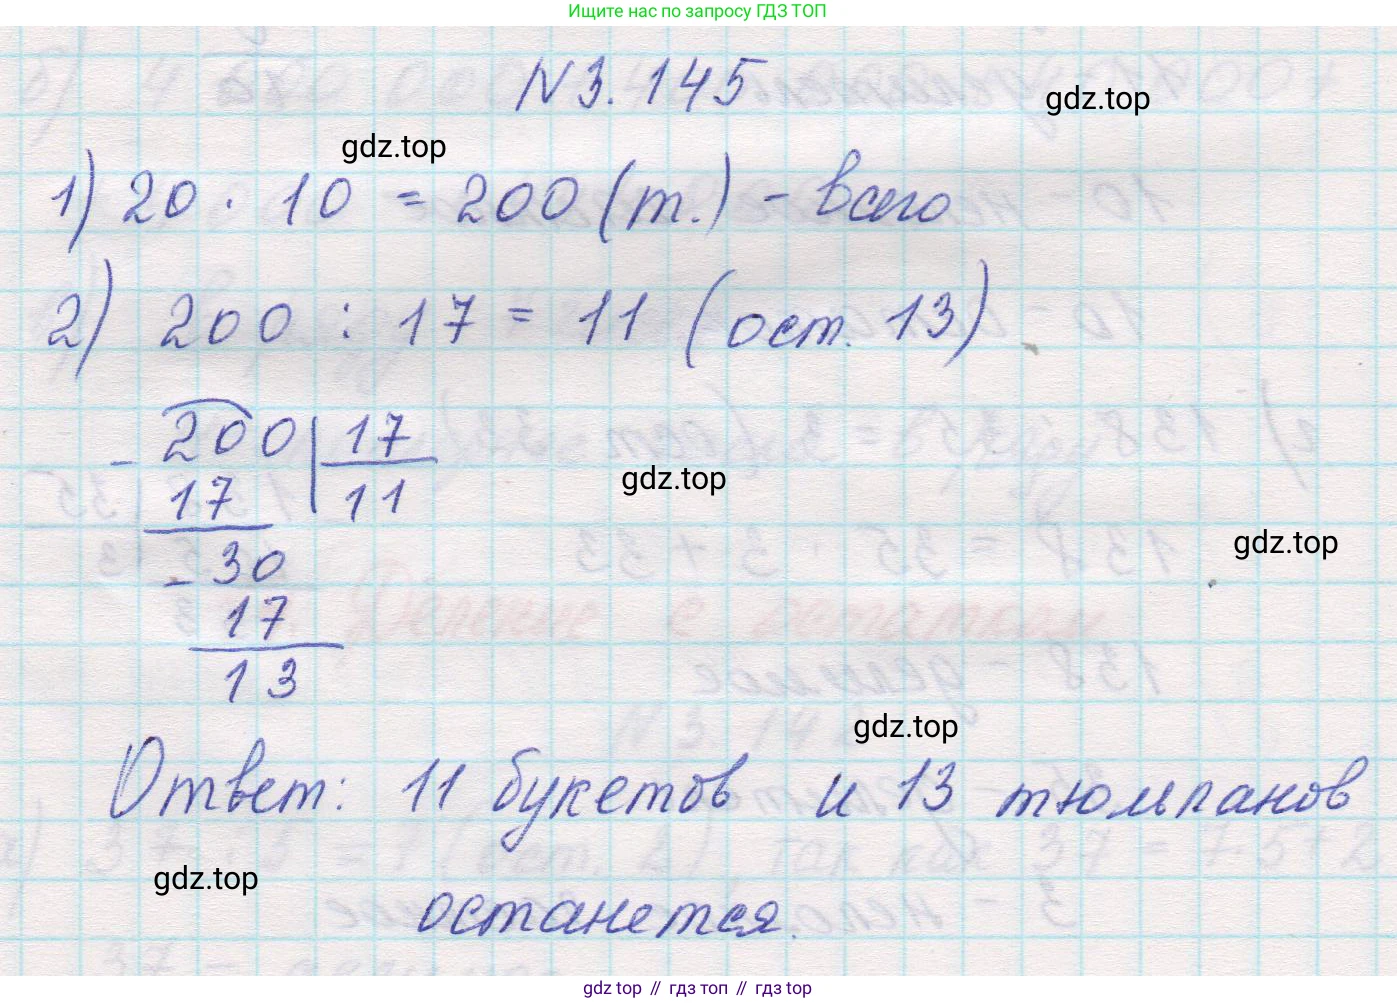 Ищите нас по запросу ГДЗ ТОП
N 3.145
gdz.top
gdz.top
1) 20 · 10 = 200 (т.) - всего
2) 200 : 17 = 11 (ост. 13)
- 200 | 17
17 11
gdz.top
- 30
gdz.top
17
13
gdz.top
Ответ: 11 букетов и 13 тюльпанов
gdz.top
останется.
gdz top // гдз топ // гдз top